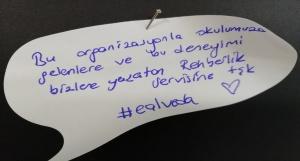 Bu organizasyonla okulumuza
gelenlere ve bu deneyimi
bizlere yaşatan Rehberlik
servisine tşk
#ealvosb ♡